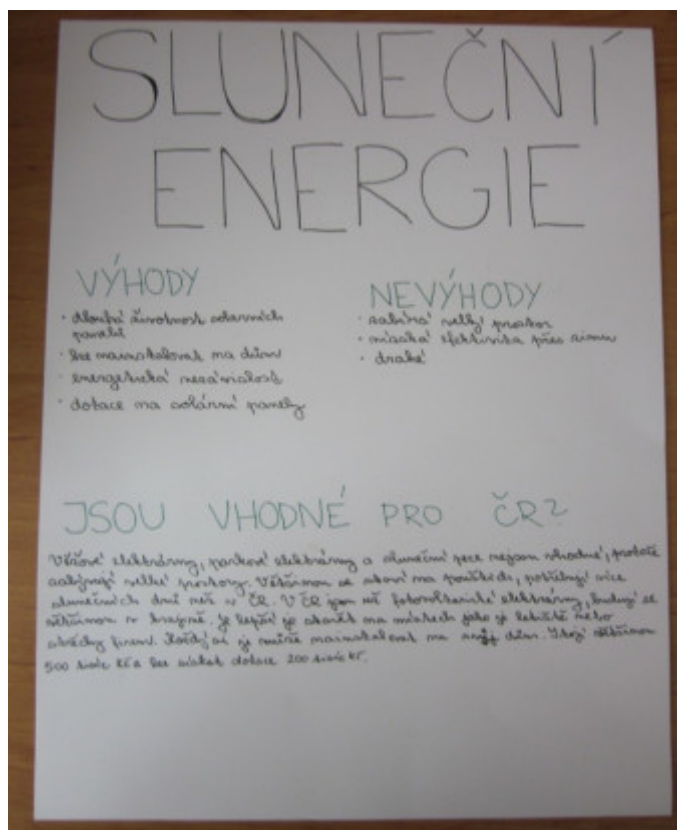 SLUNEČNÍ
ENERGIE
VÝHODY
· dlouhá životnost solárních
panelů
· lze nainstalovat na dům
· energetická nezávislost
· dotace na solární panely
NEVÝHODY
· zabírá velký prostor
· nízká efektivita přes zimu
· drahé
JSOU VHODNÉ PRO ČR?
Věžové elektrárny, parkové elektrárny a sluneční pece nejsou vhodné, protože
zabírají velké prostory. Většinou se staví na pouštích, potřebují více
slunečních dní než v ČR. V ČR jsou už fotovoltaické elektrárny, budují se
většinou v krajině. Je lepší je stavět na místech jako je letiště nebo
střechy firem. Každý si je může nainstalovat na svůj dům. Stojí většinou
500 tisíc Kč a lze získat dotace 200 tisíc Kč.